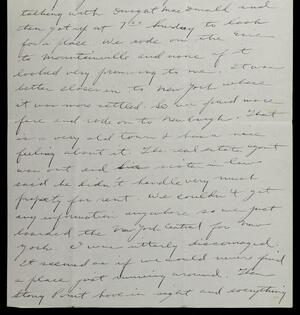 talking with Dwight MacDonald and
then got up at 7 Sunday to look
for a place. We rode on the Erie
to Mountainville and none of it
looked very promising to me. It was
better closer in to New York where
it was more settled. So we paid more
fare and rode on to Newburgh. That
is a very old town & has a nice
feeling about it. The real estate agent
was out and his sister in law
said he didn't handle very much
property for rent. We couldn't get
any information anywhere so we just
boarded the New York Central for New
York. I was utterly discouraged.
It seemed as if we would never find
a place just running around. Then
Stony Point hove in sight and everything